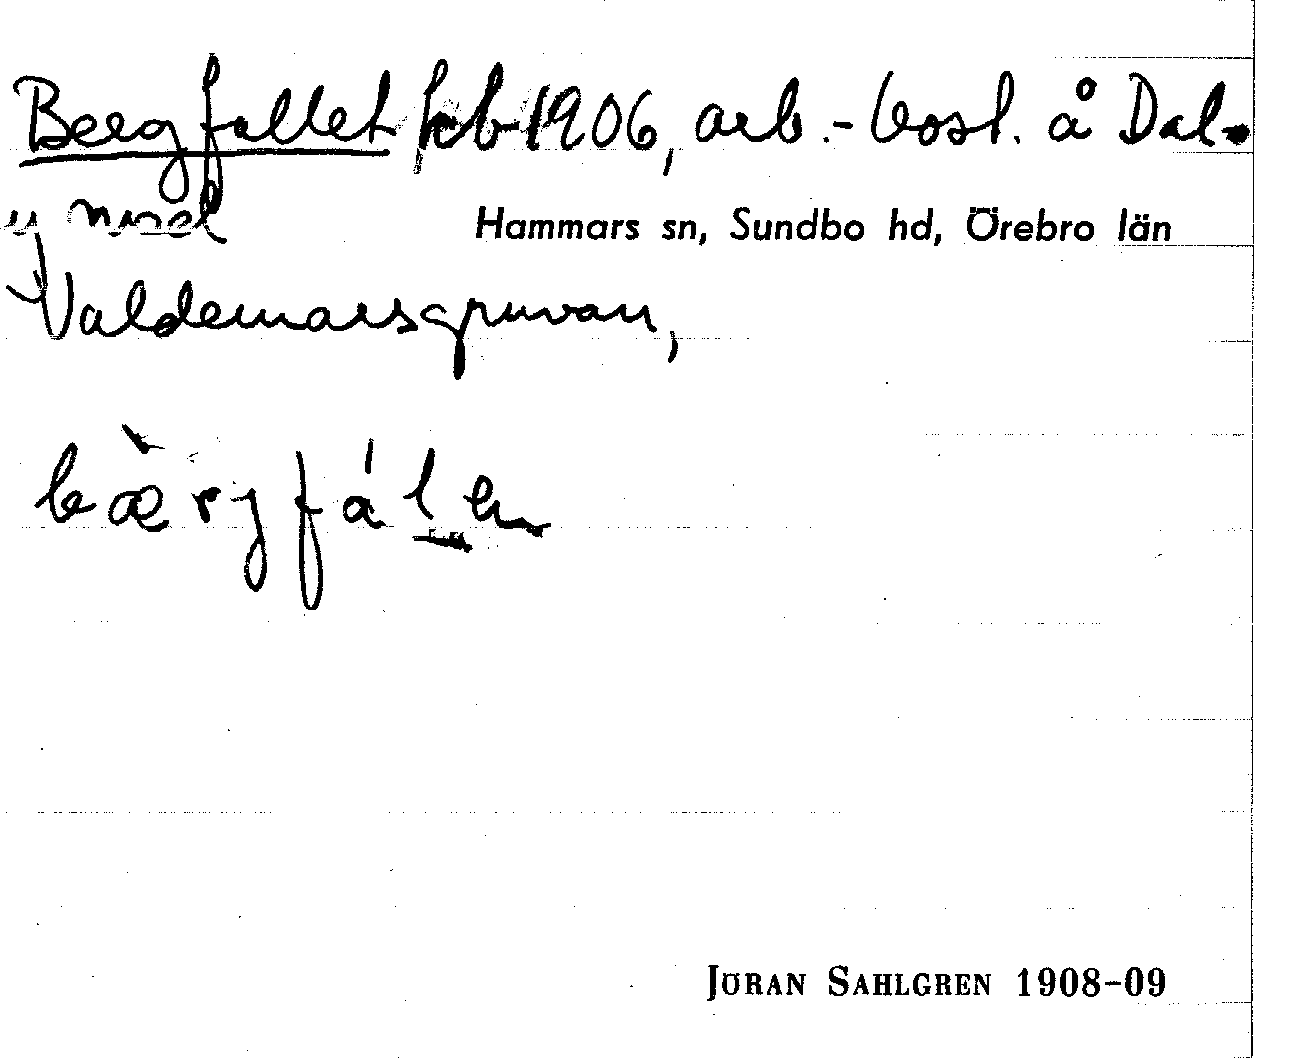 Bergfallet jfb 1906, arb.-bost. å Dal-
Hammars sn, Sundbo hd, Örebro län
Valdemarsgruvan,
bæ̀rgfál en
JÖRAN SAHLGREN 1908-09